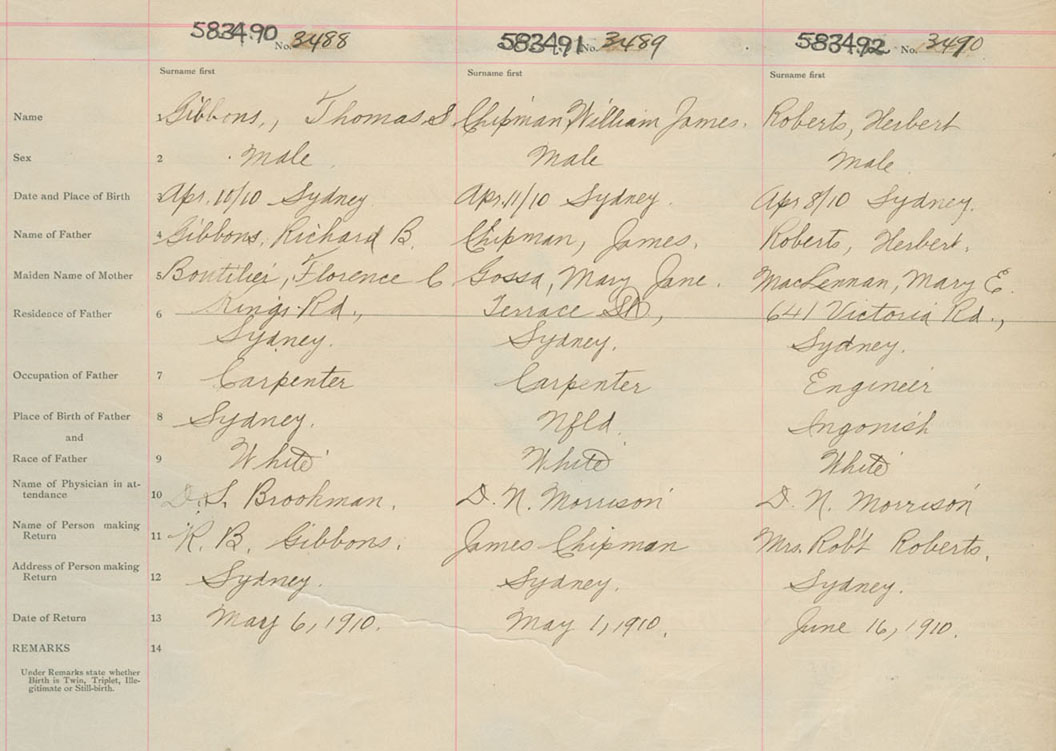 583490 No. 3488 583491 No. 3489 583492 No. 3490
Surname first Surname first Surname first
Name 1 Gibbons, Thomas S Chipman William James. Roberts, Herbert
Sex 2 Male Male Male
Date and Place of Birth 3 Apr. 10/10 Sydney Apr. 11/10 Sydney. Apr 8/10 Sydney.
Name of Father 4 Gibbons, Richard B. Chipman, James. Roberts, Herbert.
Maiden Name of Mother 5 Boutilier, Florence C Gossa, Mary Jane. MacLennan, Mary E.
Residence of Father 6 Kings Rd., Terrace St., 641 Victoria Rd.,
Sydney. Sydney. Sydney.
Occupation of Father 7 Carpenter Carpenter Engineer
Place of Birth of Father 8 Sydney. Nfld. Ingonish
and
Race of Father 9 White White White
Name of Physician in at-
tendance 10 D. S. Brookman. D. N. Morrison D. N. Morrison
Name of Person making
Return 11 R. B. Gibbons. James Chipman Mrs. Rob't Roberts.
Address of Person making
Return 12 Sydney. Sydney. Sydney.
Date of Return 13 May 6, 1910. May 1, 1910. June 16, 1910.
REMARKS 14
Under Remarks state whether
Birth is Twin, Triplet, Ille-
gitimate or Still-birth.